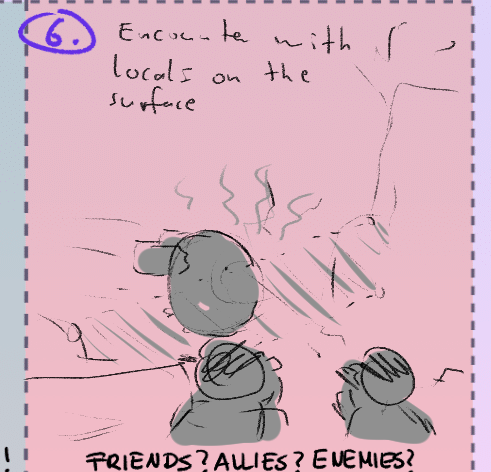 6.
Encounter with
locals on the
surface
!
FRIENDS? ALLIES? ENEMIES?